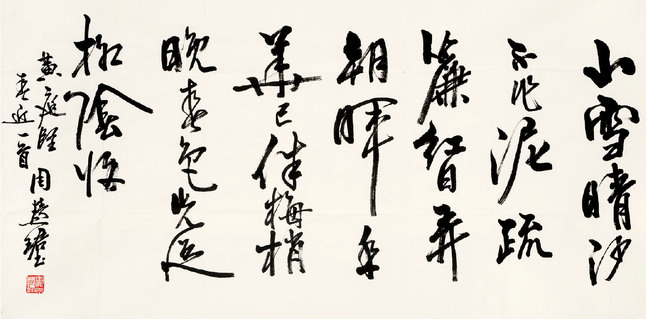 小雪晴沙
不作泥疏
簾紅日弄
朝暉年
華已伴梅梢
晚春色先從
柳際歸
黄庭堅
春近一首 周慧珺